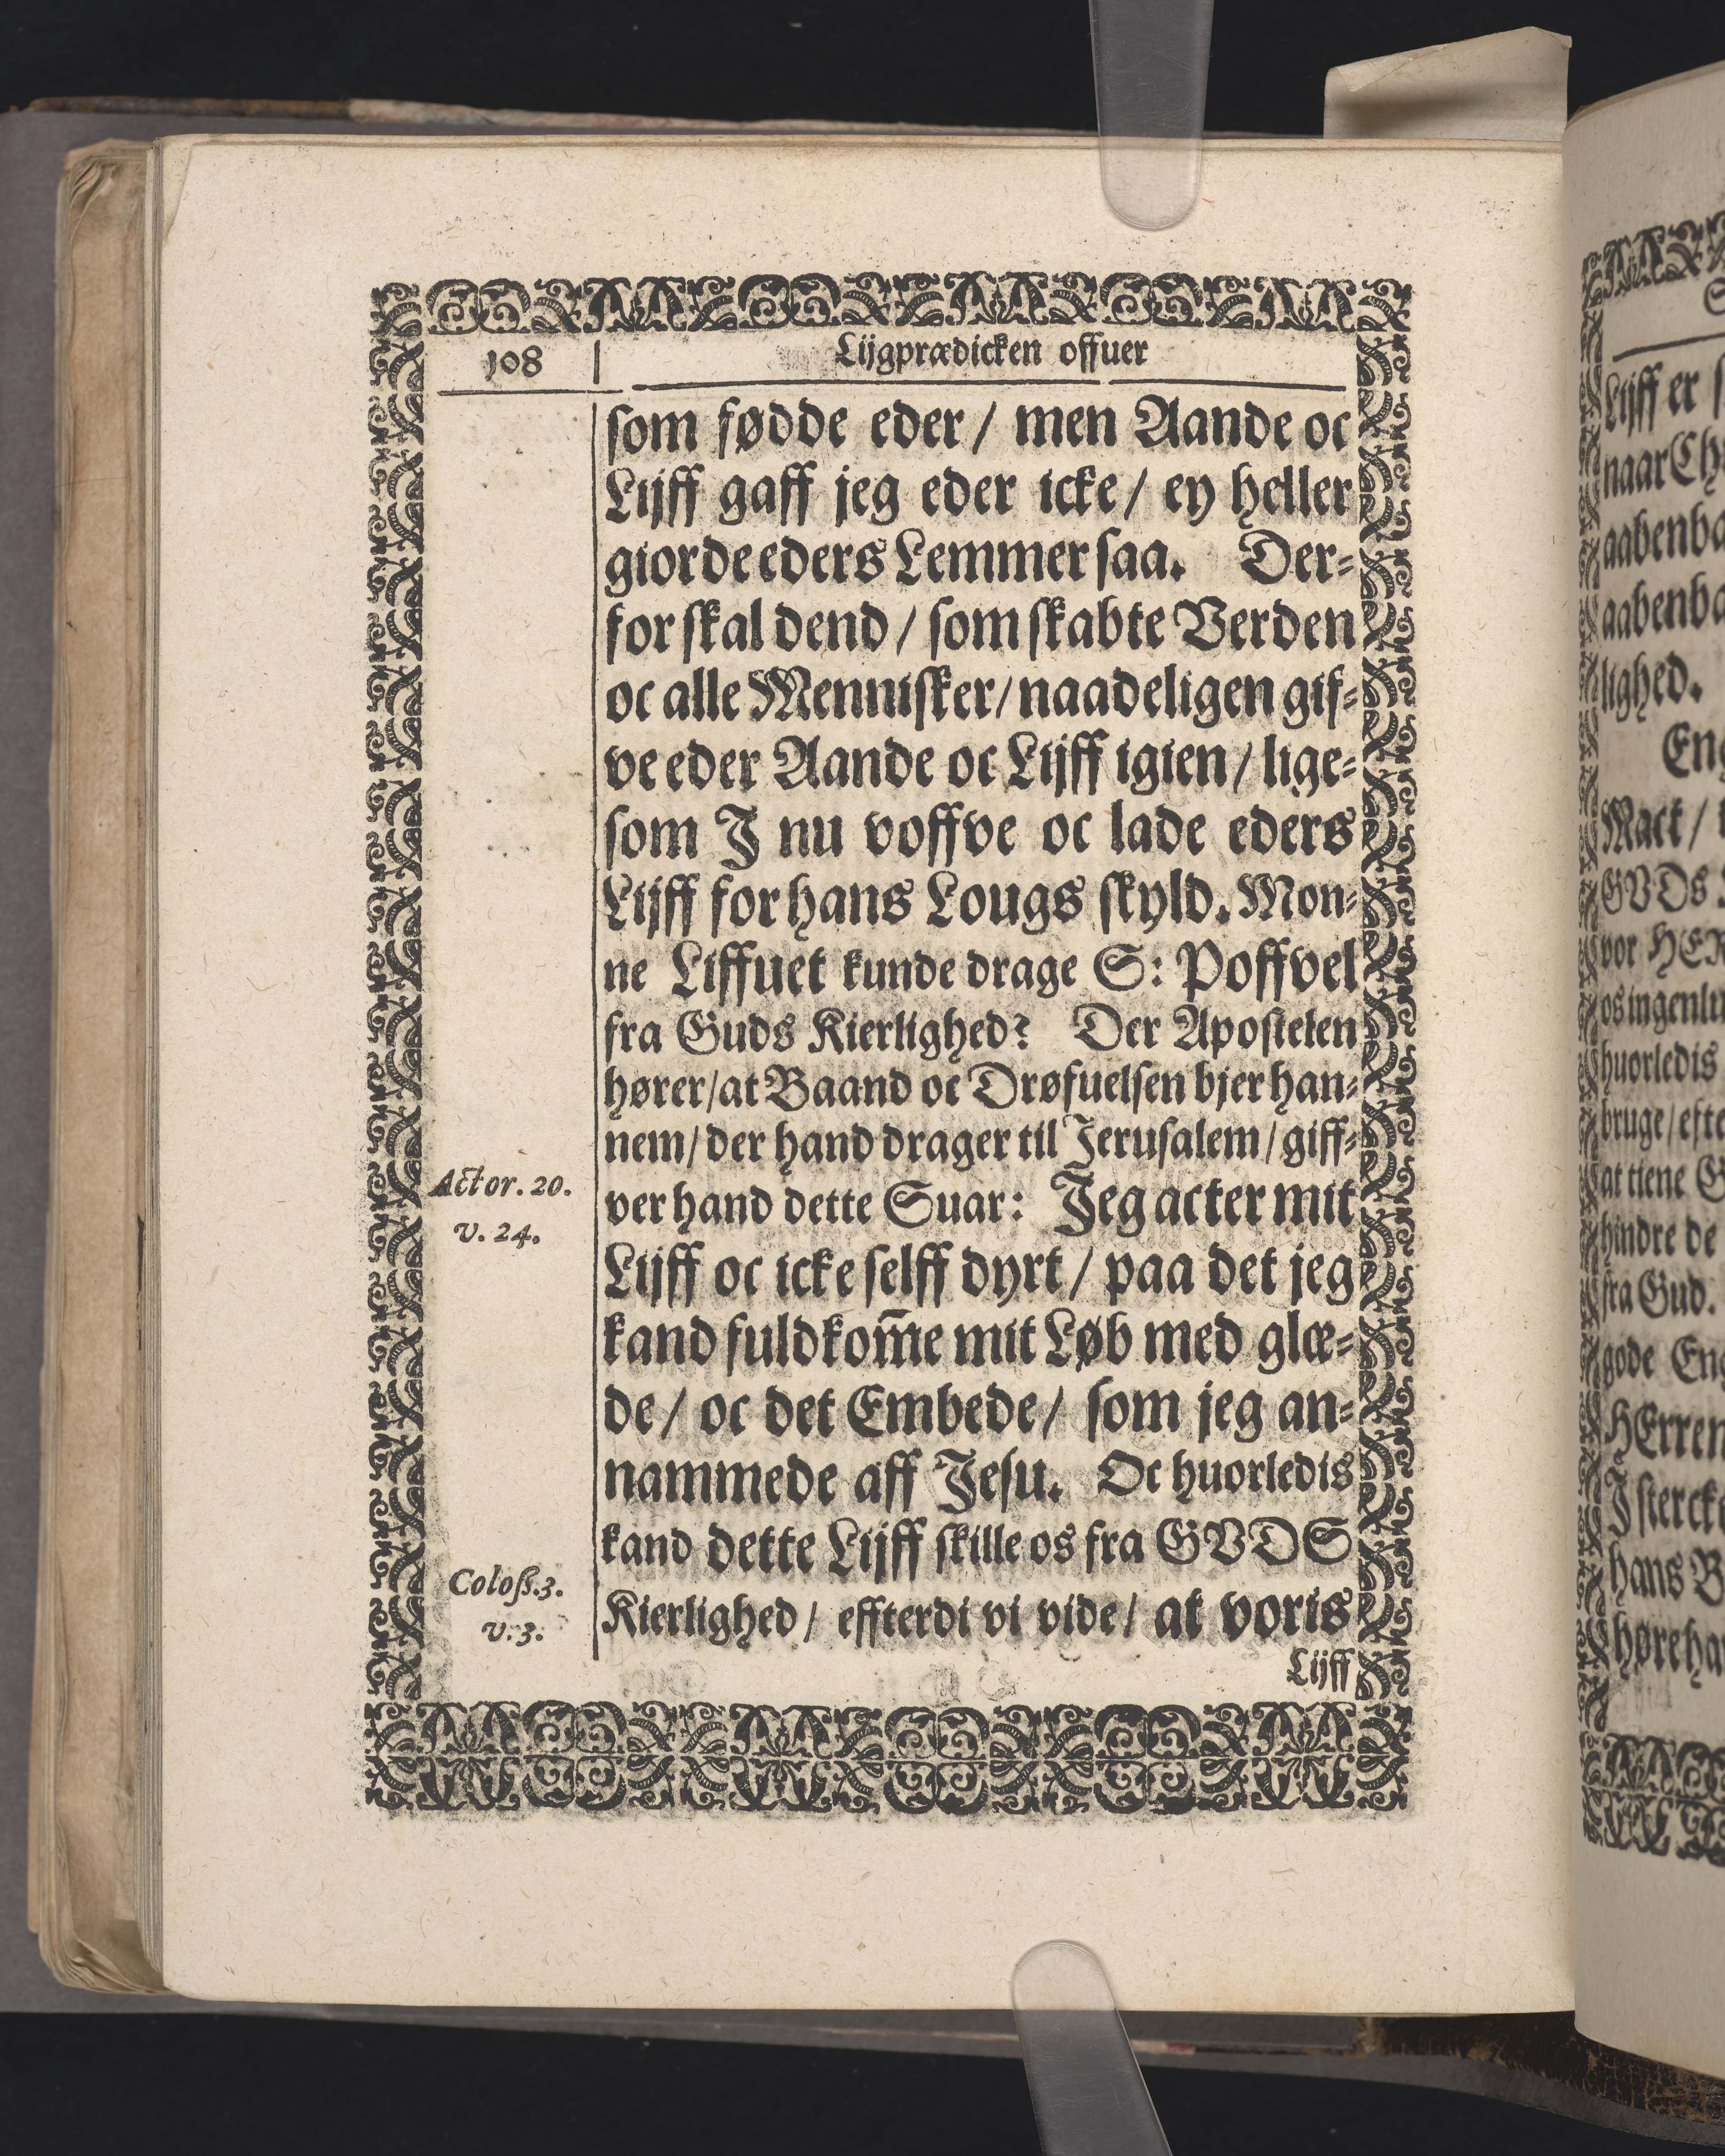 108
Lijgprædicken offuer
som fødde eder / men Aande oc
Lijff gaff jeg eder icke / ey heller
giorde eders Lemmer saa. Der⸗
for skal dend / som skabte Verden
oc alle Mennisker / naadeligen gif⸗
ve eder Aande oc Lijff igien / lige⸗
som J nu voffve oc lade eders
Lijff for hans Lougs skyld. Mon⸗
ne Liffuet kunde drage S: Poffvel
fra Guds Kierlighed? Der Apostelen
hører / at Baand oc Drøfuelsen bjer han⸗
nem / der hand drager til Jerusalem / giff⸗
Actor. 20.
v. 24.
ver hand dette Suar: Jeg acter mit
Lijff oc icke selff dyrt / paa det jeg
kand fuldkom̅e mit Løb med glæ⸗
de / oc det Embede / som jeg an⸗
nammede aff Jesu. Oc huorledis
kand dette Lijff skille os fra GVDS
Coloß.3.
v.3.
Kierlighed / effterdi vi vide / at voris
Lijff
Lijff er
naar
lighed.
Mact /
GVDs
vor
huorledis
at tiene
hindre de
fra Gud.
gode
HErren
hans